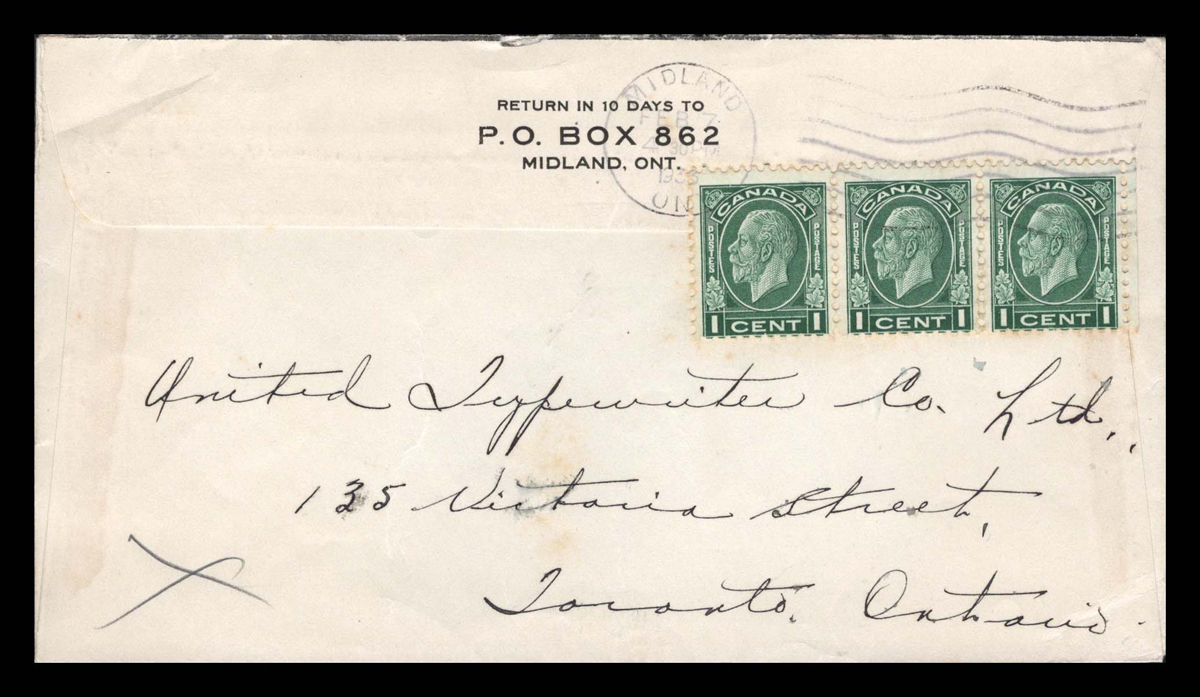 RETURN IN 10 DAYS TO
P.O. BOX 862
MIDLAND, ONT.
MIDLAND
FEB 7
ONT
CANADA
POSTES POSTAGE
1 CENT 1
CANADA
POSTES POSTAGE
1 CENT 1
CANADA
POSTES POSTAGE
1 CENT 1
United Typewriter Co. Ltd.,
135 Victoria Street,
Toronto, Ontario.